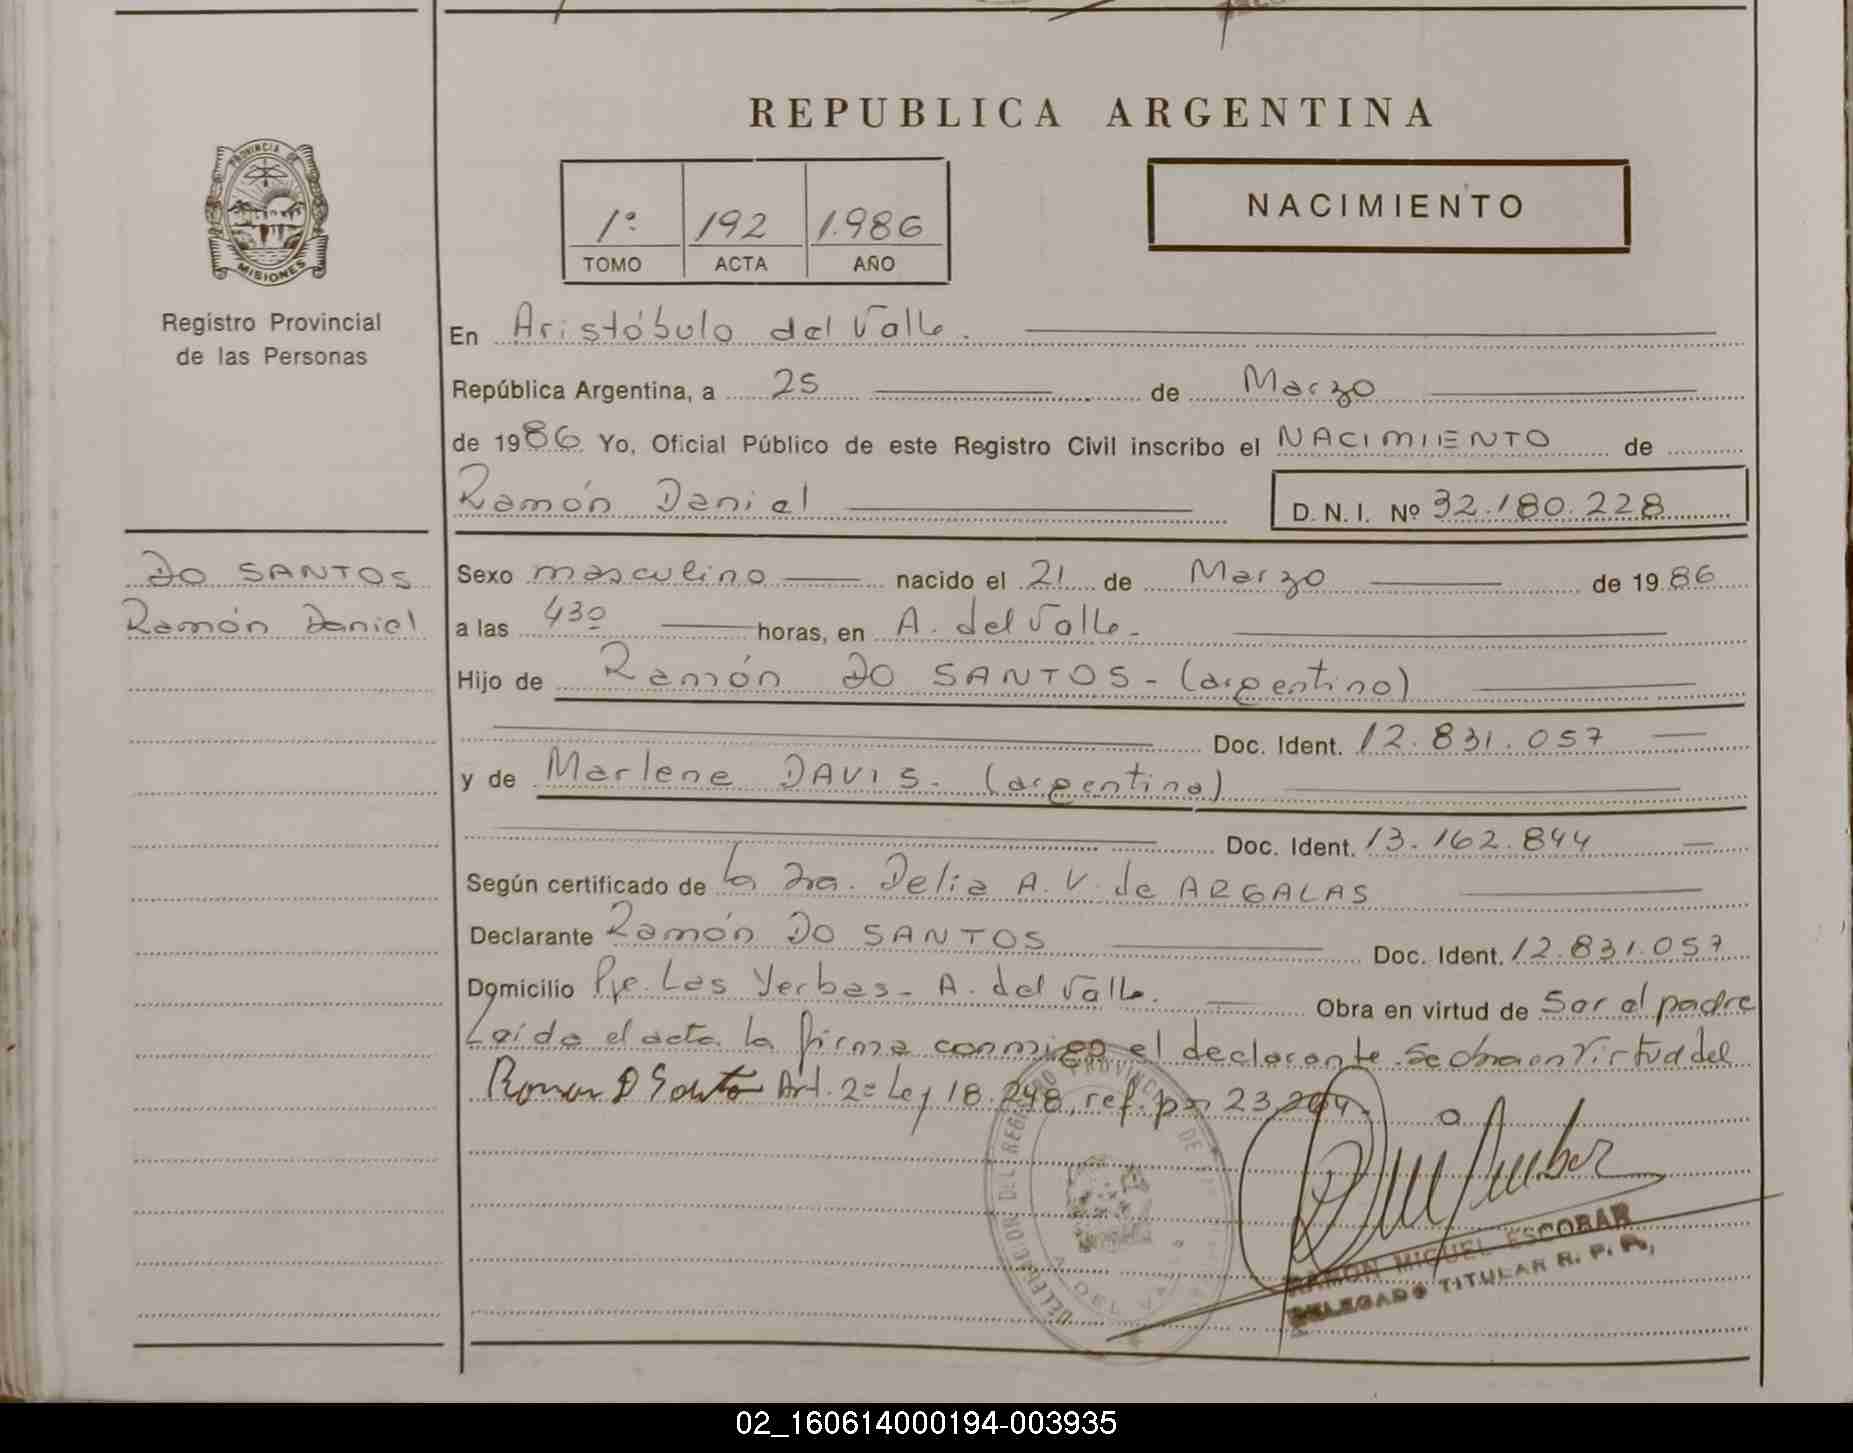 REPUBLICA ARGENTINA
PROVINCIA DE
MISIONES
Registro Provincial
de las Personas
1º 192 1.986
TOMO ACTA AÑO
NACIMIENTO
En Aristóbulo del Valle.
República Argentina, a 25 de Marzo
de 1986 Yo, Oficial Público de este Registro Civil inscribo el NACIMIENTO de
Ramón Daniel D.N.I. Nº 32.180.228
DO SANTOS
Ramón Daniel
Sexo masculino nacido el 21 de Marzo de 1986
a las 430 horas, en A. del Valle.
Hijo de Ramón DO SANTOS - (argentino)
Doc. Ident. 12.831.057
y de Marlene DAVIS. (argentina)
Doc. Ident. 13.162.844
Según certificado de la Dra. Delia A. V. de ARGALAS
Declarante Ramón DO SANTOS Doc. Ident. 12.831.057
Domicilio Pje. Las Yerbas - A. del Valle. Obra en virtud de Ser el padre
Leída el acta la firma conmigo el declarante. Se obra en Virtud del
Art. 2º Ley 18.248, ref. por 23.264.
RAMON MIGUEL ESCOBAR
DELEGADO TITULAR R. P. P.
02_160614000194-003935